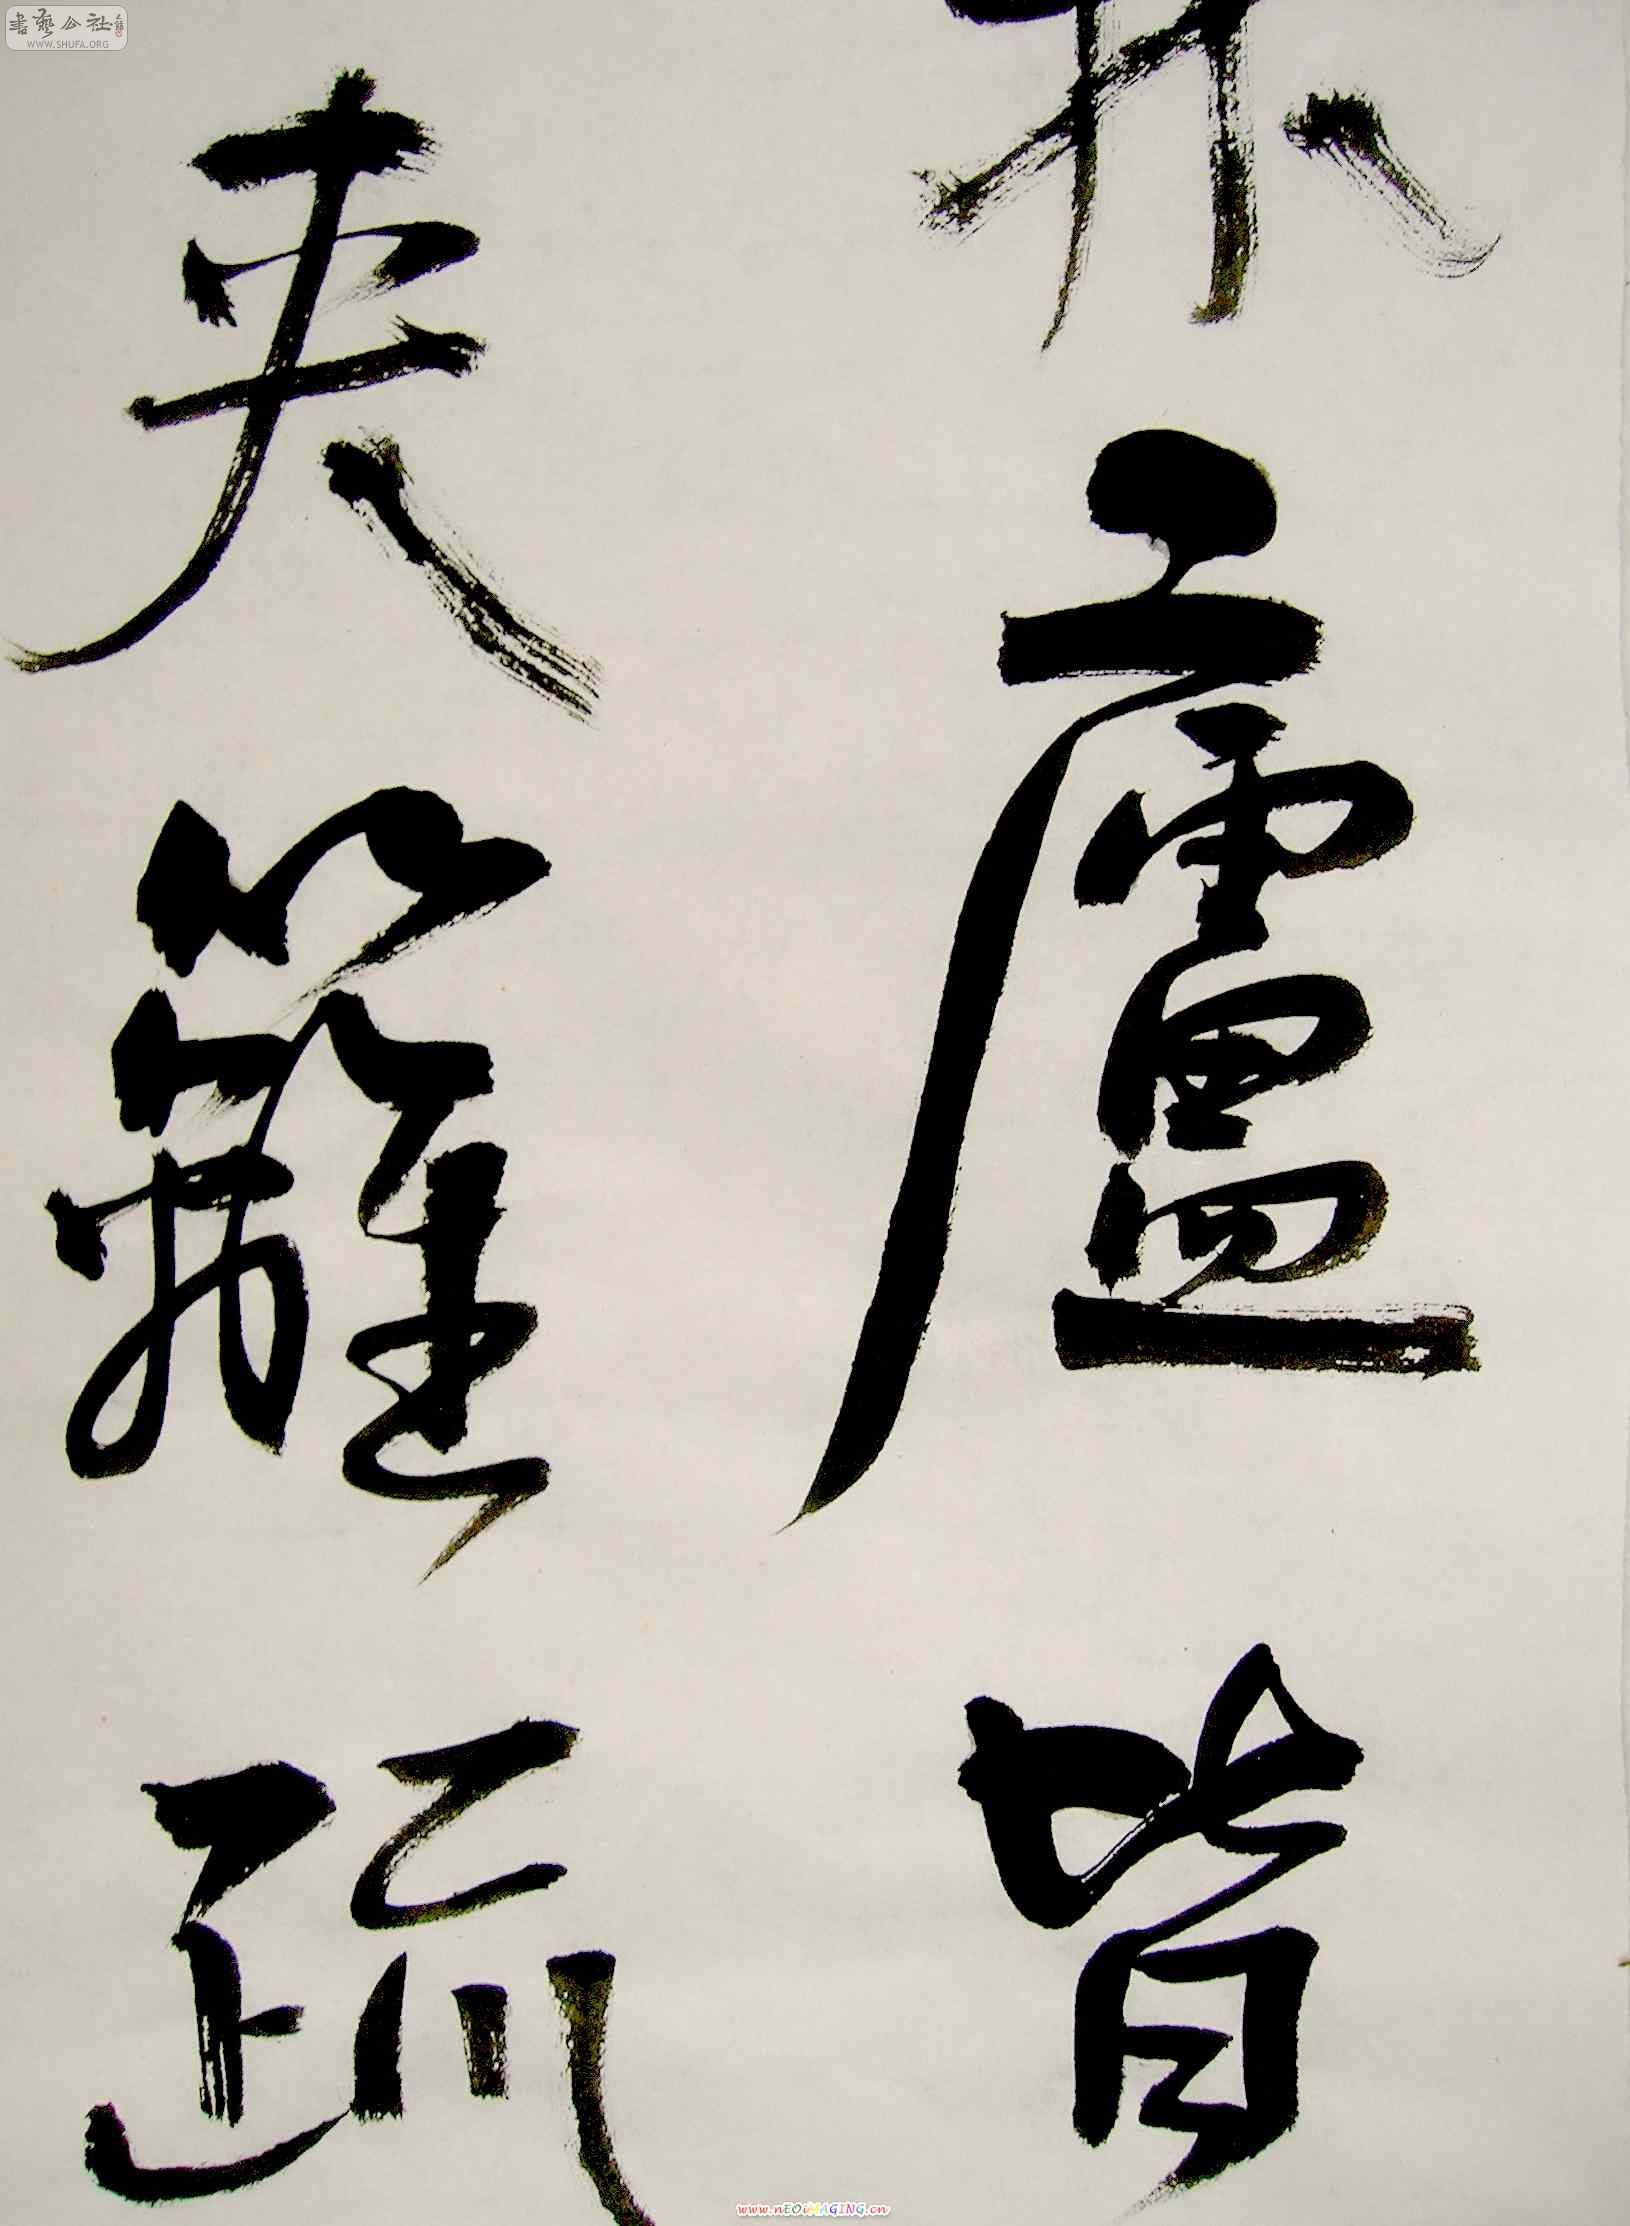 書藝公社
WWW.SHUFA.ORG
林廬皆
夾籬疏
www.nEOiMAGING.cn